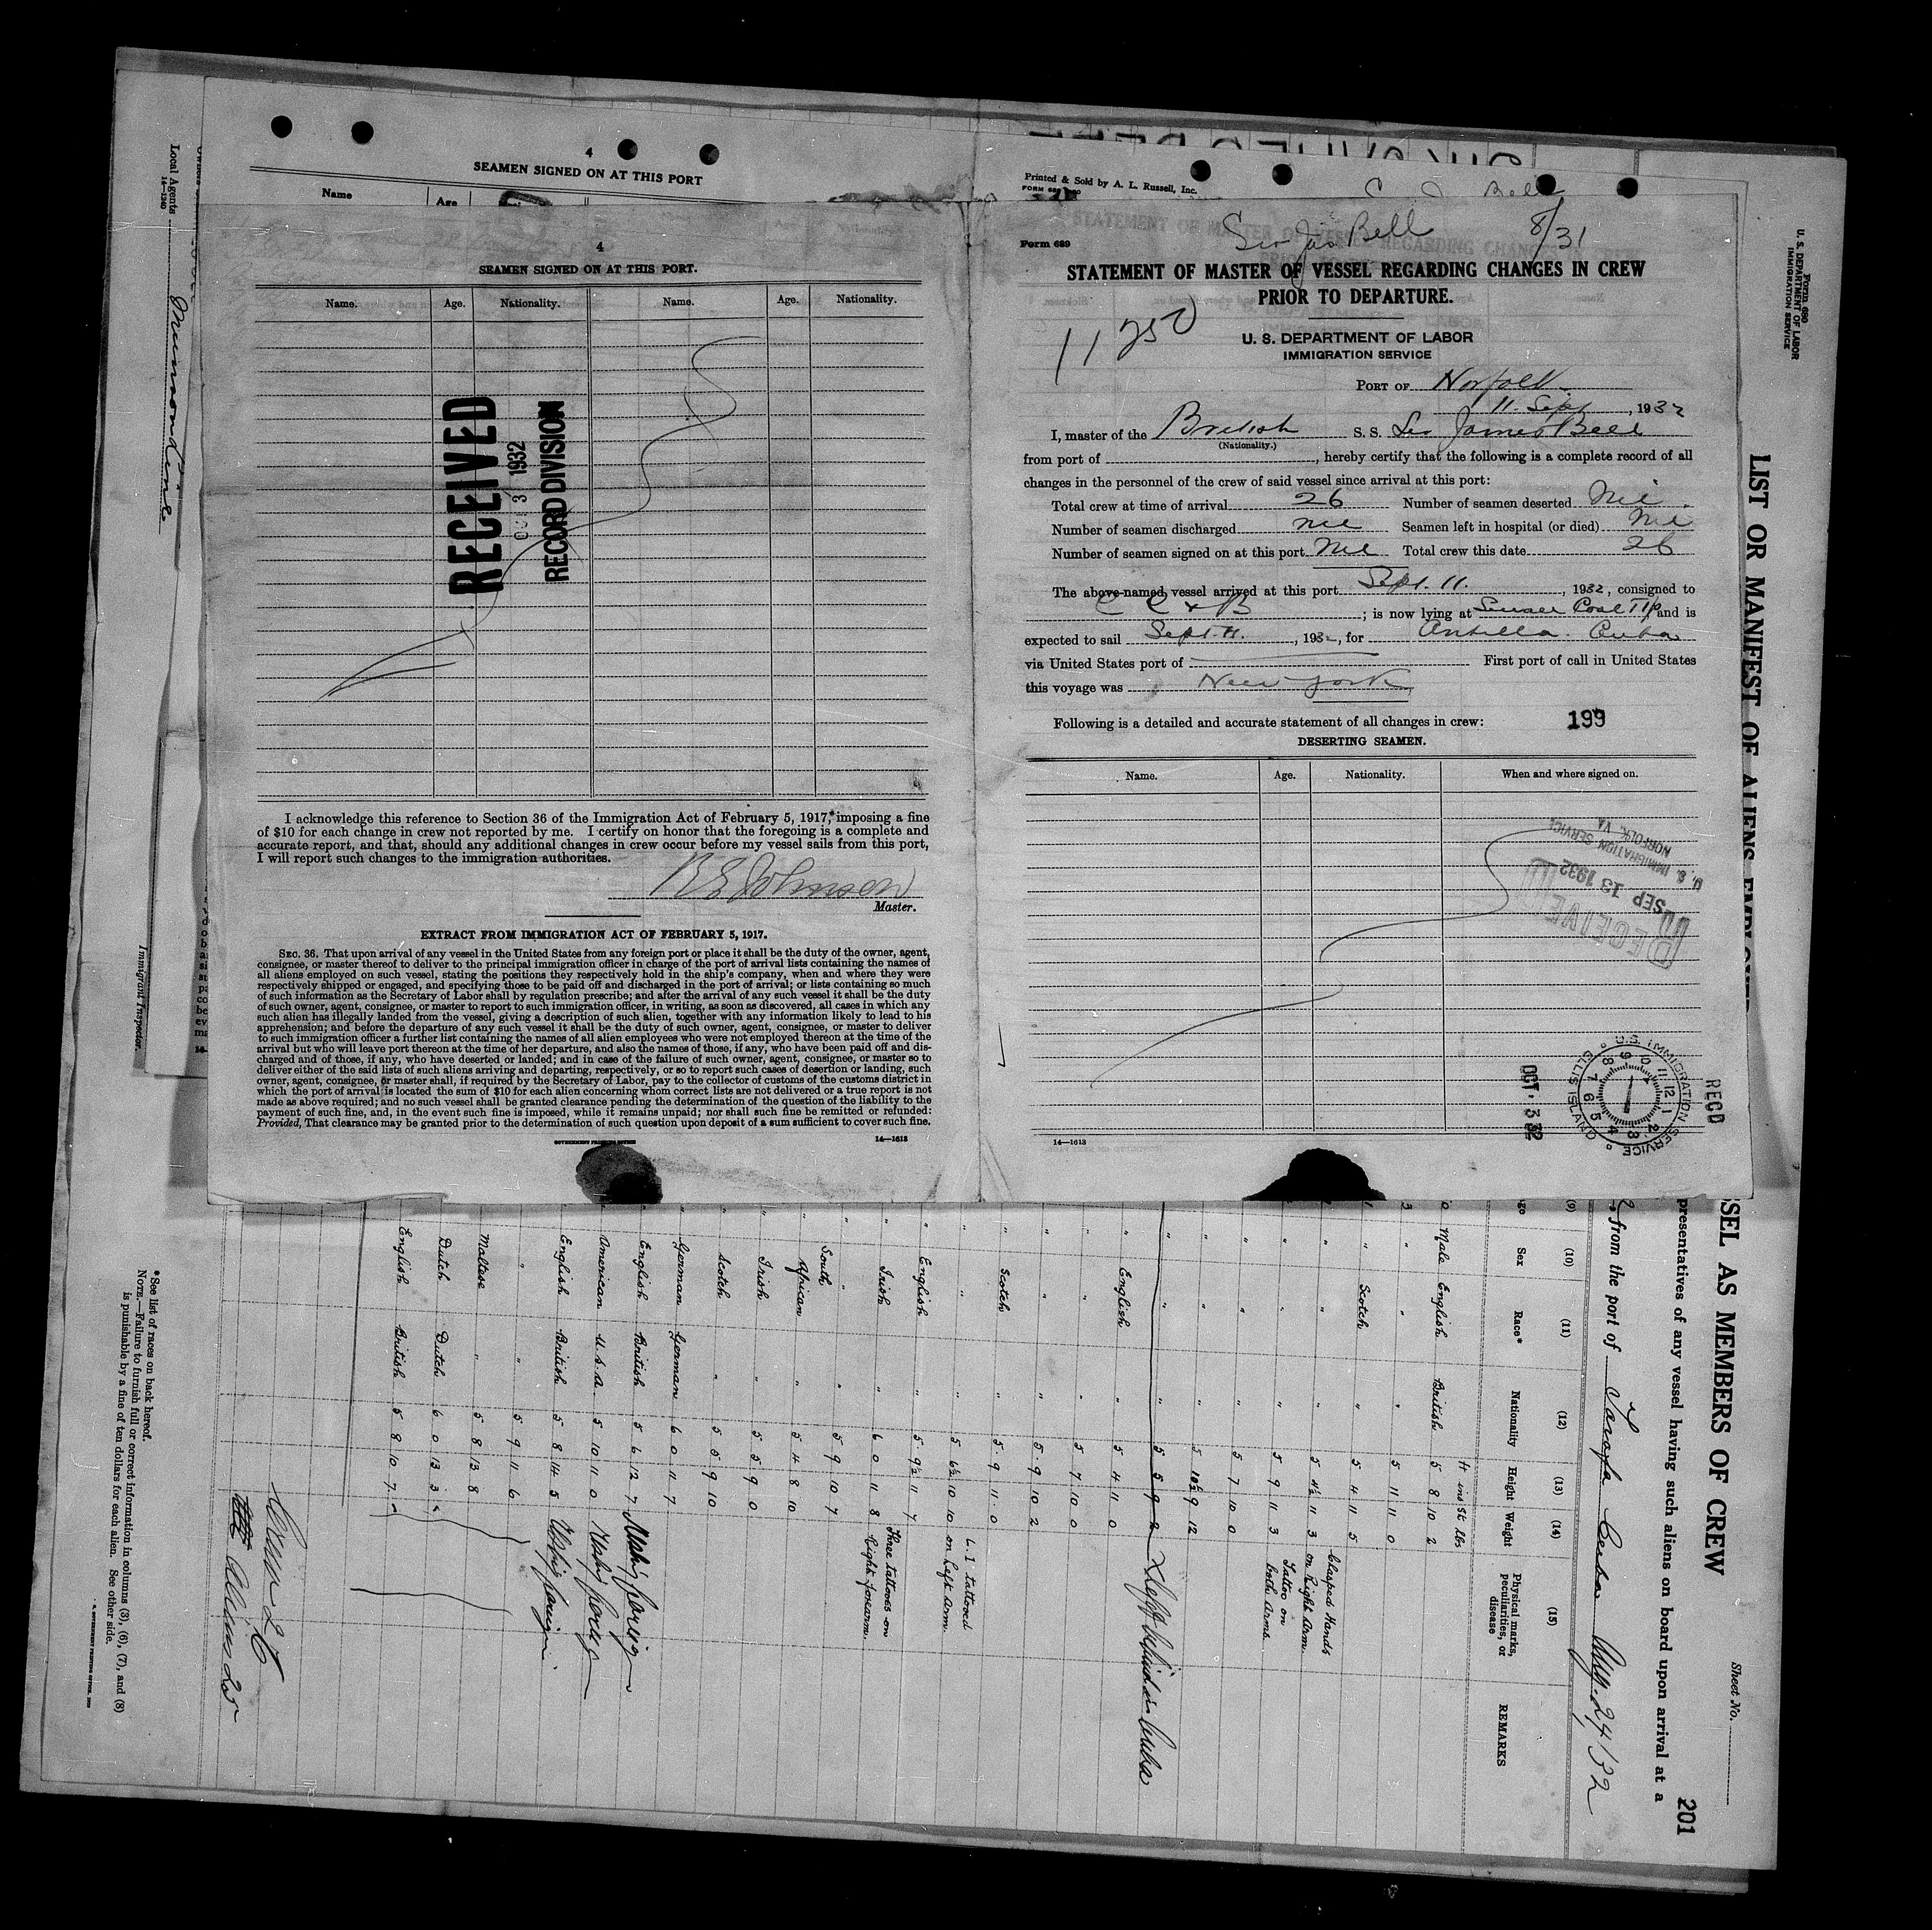 4
SEAMEN SIGNED ON AT THIS PORT
Name Age
4
SEAMEN SIGNED ON AT THIS PORT.
Name. Age. Nationality. Name. Age. Nationality.
RECEIVED
OCT 3 1932
RECORD DIVISION
I acknowledge this reference to Section 36 of the Immigration Act of February 5, 1917,* imposing a fine
of $10 for each change in crew not reported by me. I certify on honor that the foregoing is a complete and
accurate report, and that, should any additional changes in crew occur before my vessel sails from this port,
I will report such changes to the immigration authorities.
R E Johnson
Master.
EXTRACT FROM IMMIGRATION ACT OF FEBRUARY 5, 1917.
SEC. 36. That upon arrival of any vessel in the United States from any foreign port or place it shall be the duty of the owner, agent,
consignee, or master thereof to deliver to the principal immigration officer in charge of the port of arrival lists containing the names of
all aliens employed on such vessel, stating the positions they respectively hold in the ship's company, when and where they were
respectively shipped or engaged, and specifying those to be paid off and discharged in the port of arrival; or lists containing so much
of such information as the Secretary of Labor shall by regulation prescribe; and after the arrival of any such vessel it shall be the duty
of such owner, agent, consignee, or master to report to such immigration officer, in writing, as soon as discovered, all cases in which any
such alien has illegally landed from the vessel, giving a description of such alien, together with any information likely to lead to his
apprehension; and before the departure of any such vessel it shall be the duty of such owner, agent, consignee, or master to deliver
to such immigration officer a further list containing the names of all alien employees who were not employed thereon at the time of the
arrival but who will leave port thereon at the time of her departure, and also the names of those, if any, who have been paid off and dis-
charged and of those, if any, who have deserted or landed; and in case of the failure of such owner, agent, consignee, or master so to
deliver either of the said lists of such aliens arriving and departing, respectively, or so to report such cases of desertion or landing, such
owner, agent, consignee, or master shall, if required by the Secretary of Labor, pay to the collector of customs of the customs district in
which the port of arrival is located the sum of $10 for each alien concerning whom correct lists are not delivered or a true report is not
made as above required; and no such vessel shall be granted clearance pending the determination of the question of the liability to the
payment of such fine, and, in the event such fine is imposed, while it remains unpaid; nor shall such fine be remitted or refunded:
Provided, That clearance may be granted prior to the determination of such question upon deposit of a sum sufficient to cover such fine.
GOVERNMENT PRINTING OFFICE 14—1613
Printed & Sold by A. L. Russell, Inc.
Bell
Form 689
Sir Jas Bell 8/31
STATEMENT OF MASTER OF VESSEL REGARDING CHANGES IN CREW
PRIOR TO DEPARTURE.
11250
U. S. DEPARTMENT OF LABOR
IMMIGRATION SERVICE
PORT OF Norfolk
11. Sept, 1932
I, master of the British S. S. Sir James Bell
(Nationality.)
from port of , hereby certify that the following is a complete record of all
changes in the personnel of the crew of said vessel since arrival at this port:
Total crew at time of arrival 26 Number of seamen deserted Nil
Number of seamen discharged Nil Seamen left in hospital (or died) Nil
Number of seamen signed on at this port Nil Total crew this date 26
The above-named vessel arrived at this port Sept. 11., 1932, consigned to
C C & B; is now lying at Sewall Coal Tip and is
expected to sail Sept. 11., 1932, for Antilla. Cuba
via United States port of First port of call in United States
this voyage was New York
Following is a detailed and accurate statement of all changes in crew: 199
DESERTING SEAMEN.
Name. Age. Nationality. When and where signed on.
U. S. IMMIGRATION SERVICE
NORFOLK, VA
SEP 13 1932
RECEIVED
RECD
U.S. IMMIGRATION SERVICE
ELLIS ISLAND
OCT 3 32
14—1613
Local Agents
14—1240
Immigrant Inspector.
Form 680
U. S. DEPARTMENT OF LABOR
IMMIGRATION SERVICE
Sheet No.
201
LIST OR MANIFEST OF ALIENS EMPLOYED
SSEL AS MEMBERS OF CREW
presentatives of any vessel having such aliens on board upon arrival at a
from the port of Tarafa Cuba Aug. 24/32
(9) (10) (11) (12) (13) (14) (15)
Sex Race* Nationality Height Weight Physical marks, peculiarities, or disease REMARKS
ft ins St lbs
Male English British 5 8 10 2
" " " 5 11 11 0
" Scotch " 5 4 11 5
" " " 5 4½ 11 3 Clasped Hands on Right Arm.
" " " 5 9 11 3 Tattoo on both Arms.
" " " 5 7 10 0
" " " 5 10½ 9 12
" " " 5 5 9 2
" English " 5 4 11 0
" " " 5 7 10 0
" " " 5 9 10 2
" Scotch " 5 9 11 0
" " " 5 6½ 10 10 L. I tattooed on Left Arm.
" English " 5 9½ 11 7
" Irish " 6 0 11 8 Three tattoes on Right Forearm.
" " " 5 9 10 7
" South African " 5 4 8 10
" Irish " 5 5 9 0
" Scotch " 5 5 9 10
" German German 6 0 11 7
" English British 5 6 12 7
" American U.S.A 5 10 11 0
" English British 5 8 14 5
" " " 5 9 11 6
" Maltese " 5 8 13 8
" Dutch Dutch 6 0 13 3
" English British 5 8 10 7
Crew 26
Aliens 25
*See list of races on back hereof.
NOTE.—Failure to furnish full or correct information in columns (3), (6), (7), and (8)
is punishable by a fine of ten dollars for each alien. See other side.